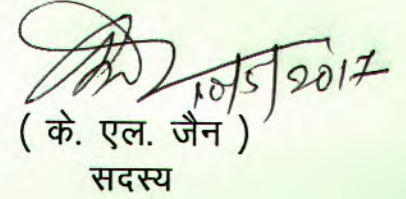 10/5/2017
( के. एल. जैन )
सदस्य